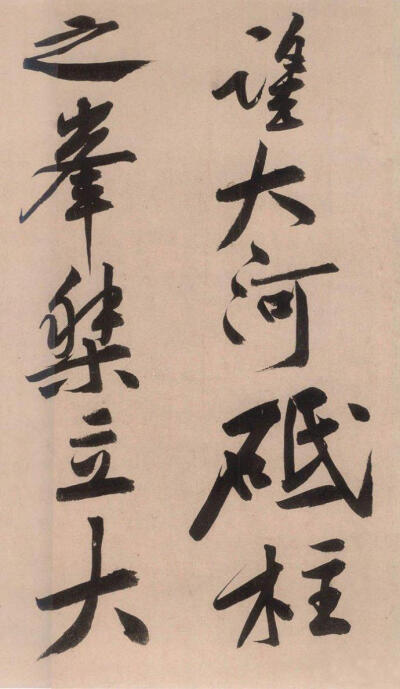 大河砥柱
之峯桀立大